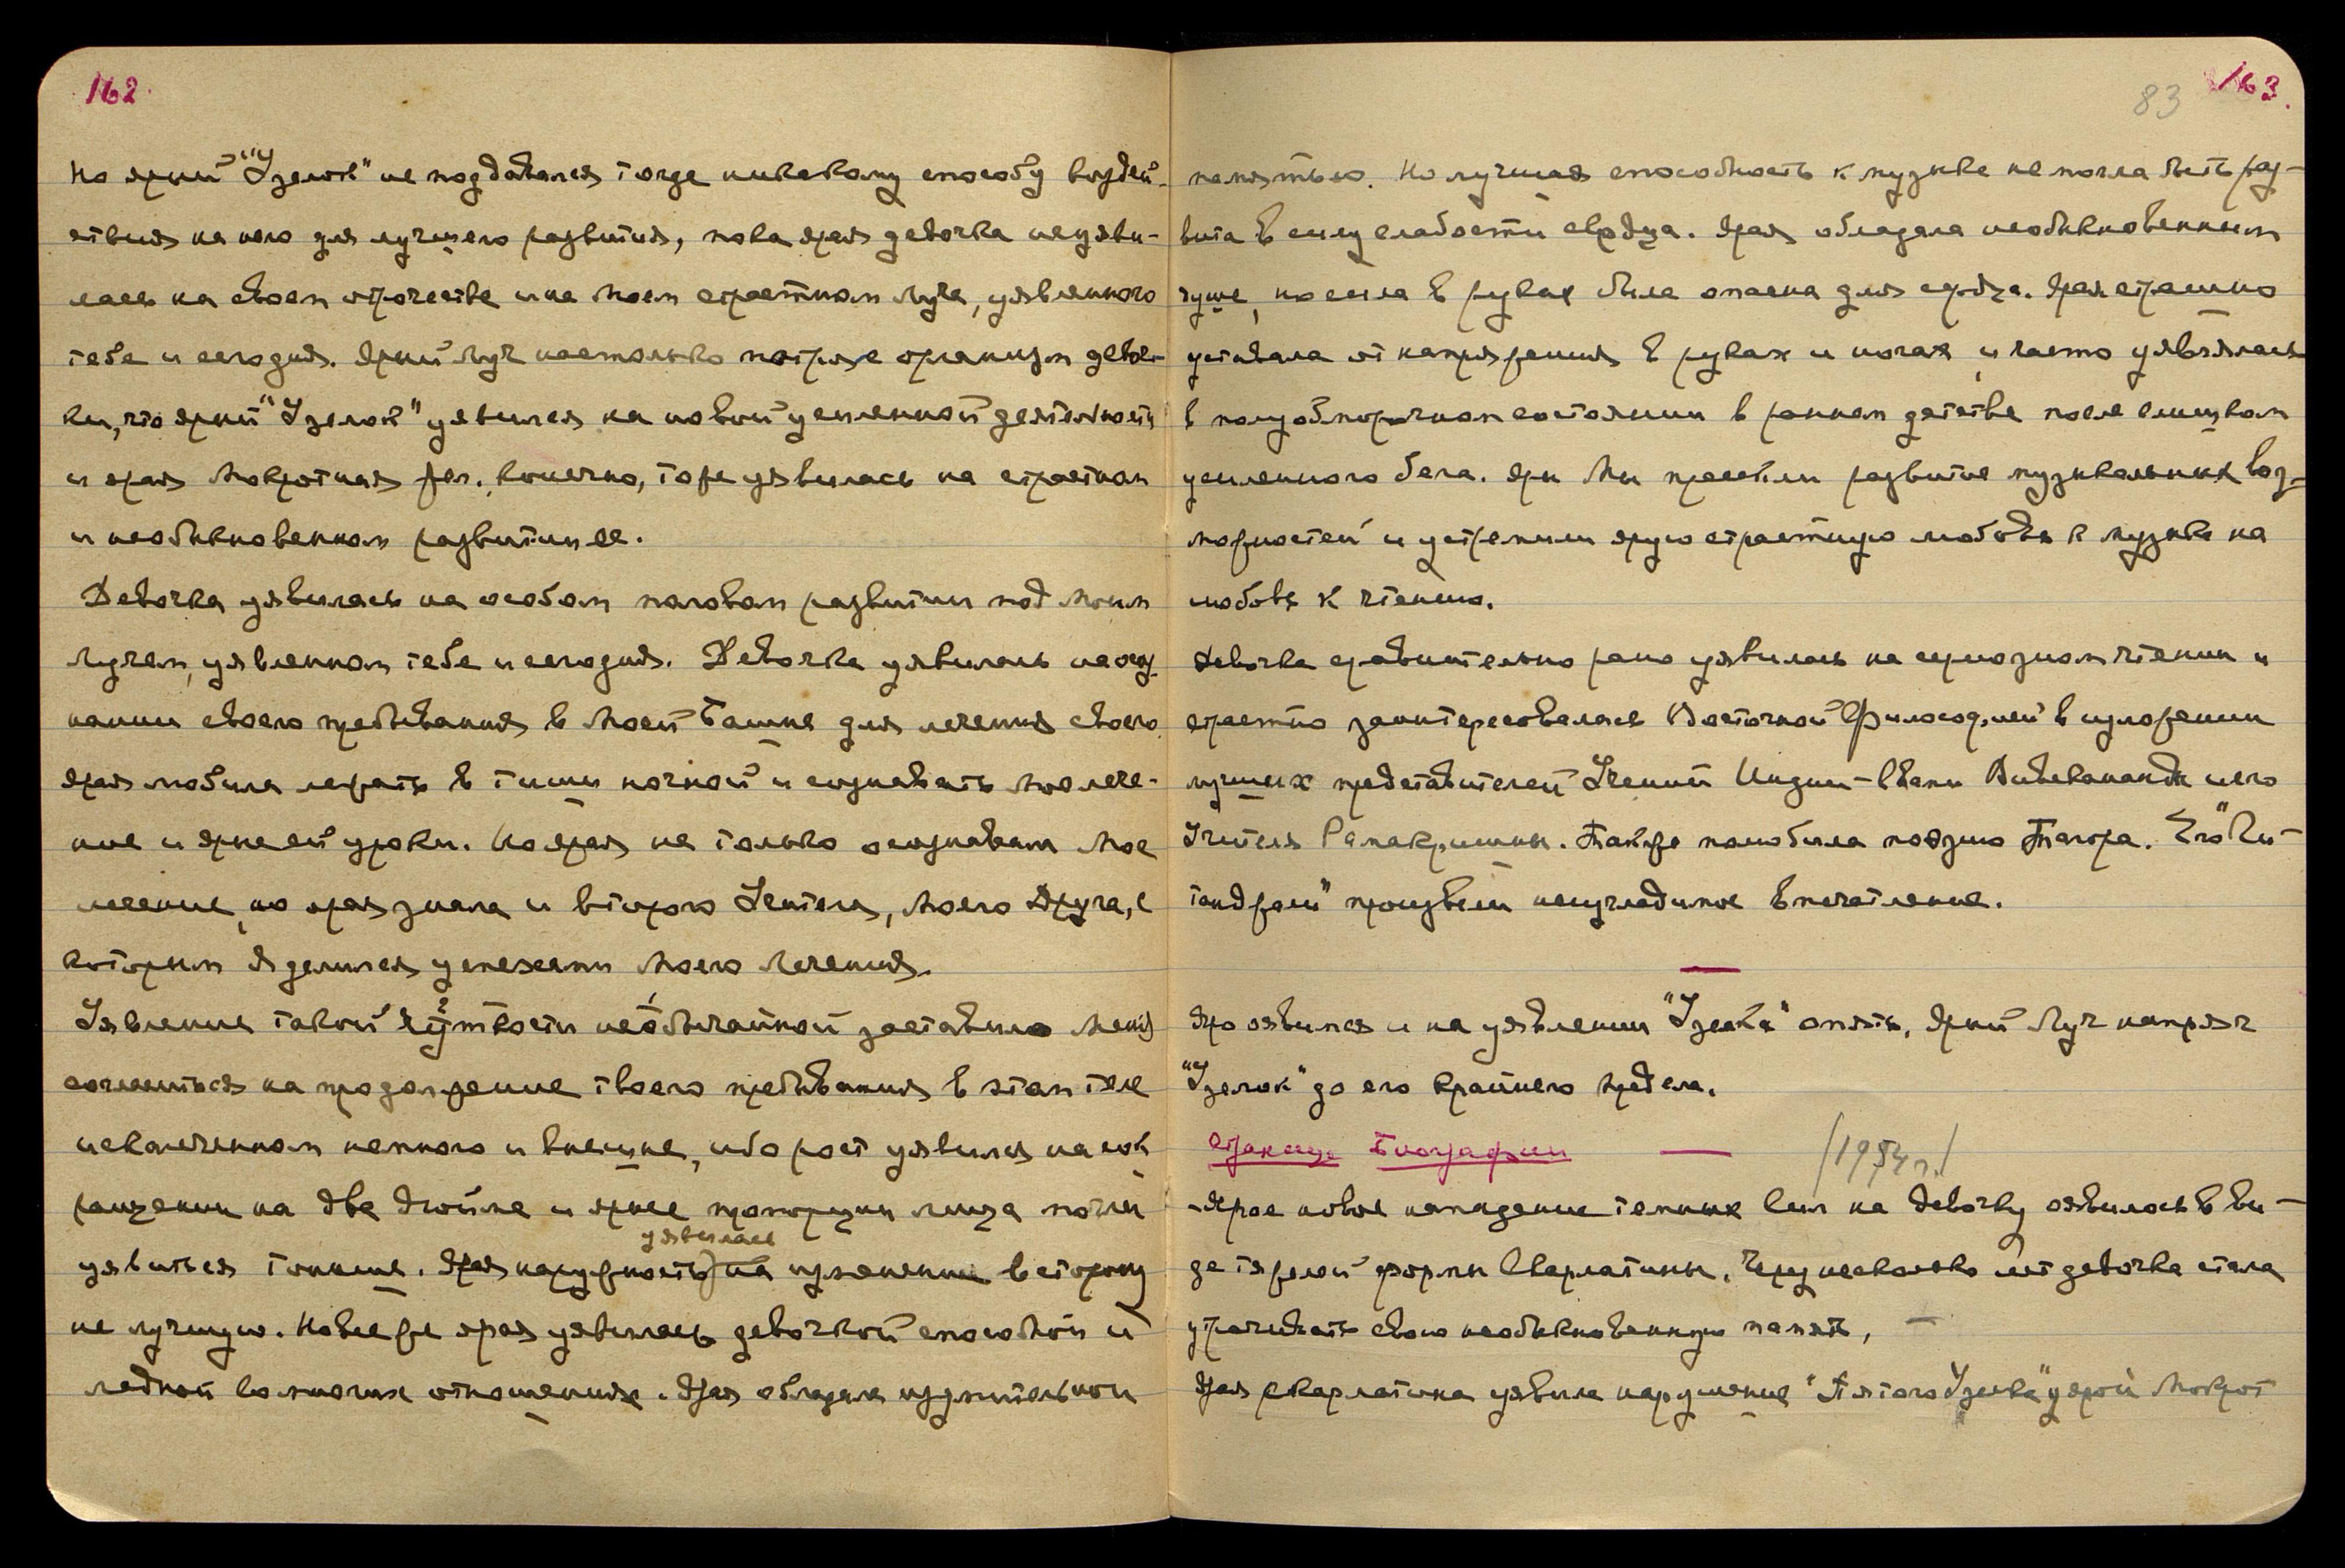 162.
Но ярый "Узелок" не поддавался тогда никакому способу воздей-
ствия на него для лучшего развития, пока ярая девочка не уяви-
лась на своем отрочестве и на Моем страстном Луче, уявленного
тебе и сегодня. Ярый Луч настолько потряс организм девоч-
ки, что ярый "Узелок" уявился на новой усиленной деятельности
и ярая Мокротная жел. конечно, тоже уявилась на страстном
и необыкновенном развитии ее.
Девочка уявилась на особом половом развитии под Моим
Лучем, уявленном тебе и сегодня. Девочка уявилась на осоз-
нании своего пребывания в Моей Башне для лечения своего.
Ярая любила лежать в тиши ночной и сознавать Мое лече-
ние и ярые ей уроки. Но ярая не только осознавала Мое
лечение, но ярая знала и второго Учителя, Моего Друга, с
которым Я делился успехами Моего Лечения.
Уявление такой чуткости необычайной заставило Меня
согласиться на продолжение твоего пребывания в этом теле
искалеченном немного и внешне, ибо рост уявился на сок
ращении на два дюйма и ярые пропорции лица могли
уявиться тоньше. Ярая наружность уявилась на изменении в сторону
не лучшую. Но все же ярая уявилась девочкой способной и
ладной во многих отношениях. Ярая обладала изумительной
83 163.
памятью. Но лучшая способность к музыке не могла быть раз-
вита в силу слабости сердца. Ярая обладала необыкновенным
туше, но сила в руках была опасна для сердца. Ярая страшно
уставала от напряжения в руках и ногах и часто уявлялась
в полуобморочном состоянии в раннем детстве после слишком
усиленного бега. Яры Мы пресекли развитие музыкальных воз-
можностей и устремили ярую страстную любовь к музыке на
любовь к чтению.
Девочка сравнительно рано уявилась на серьозном чтении и
страстно заинтересовалась Восточной Философией в изложении
лучших представителей Учений Индии – Свами Вивекананды и его
Учителя Рамакришны. Также полюбила поэзию Тагора. Его "Ги-
танджали" произвели неизгладимое впечатление.
Яро оявился и на уявлении "Узелка" опять. Ярый Луч напряг
"Узелок" до его крайнего предела.
Страница Биографии — /1954 г./
Ярое новое нападение темных Сил на девочку оявилось в ви-
де тяжелой формы Скарлатины. Через несколько лет девочка стала
утрачивать свою необыкновенную память, —
Ярая скарлатина уявила нарушение "Пятого Узелка" у ярой Мокрот